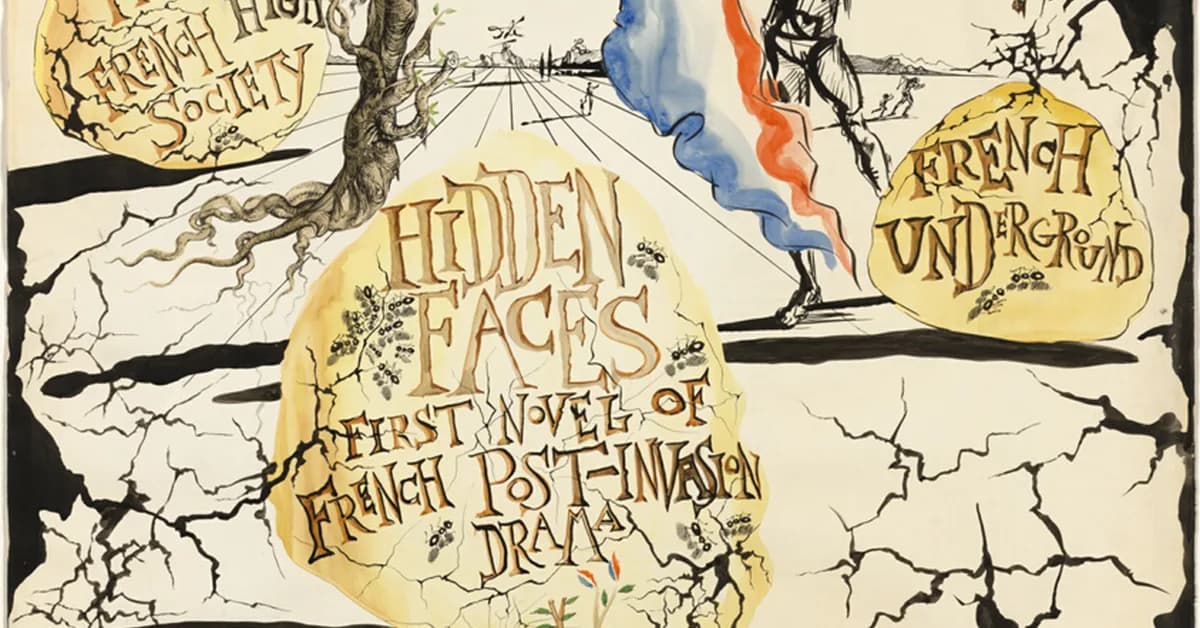 HIGH
FRENCH
SOCIETY
FRENCH
UNDERGROUND
HIDDEN
FACES
FIRST NOVEL OF
FRENCH POST-INVASION
DRAMA